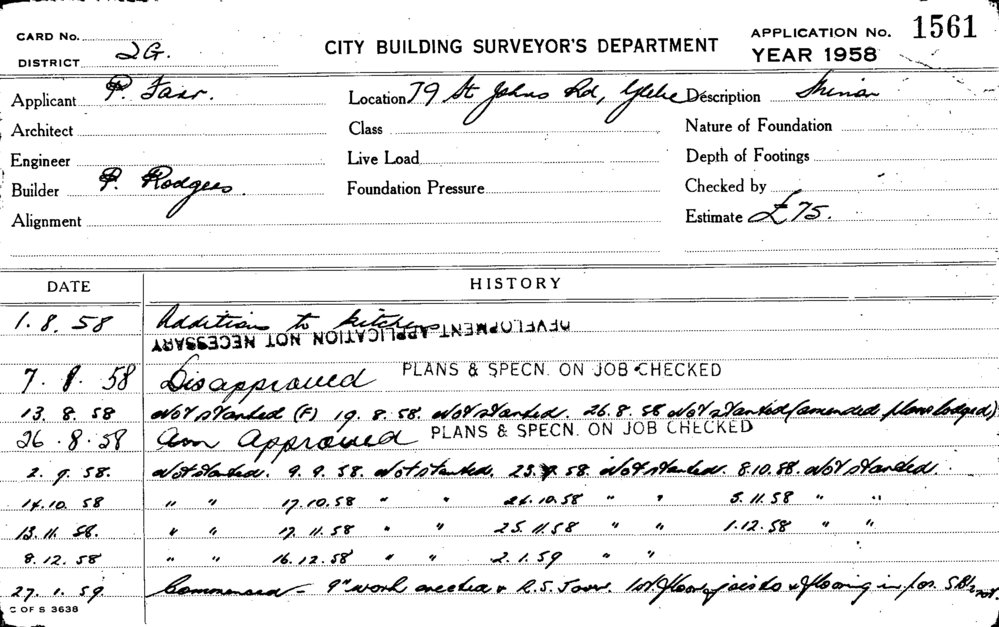 CARD No.
DISTRICT 2G.
CITY BUILDING SURVEYOR'S DEPARTMENT
APPLICATION No. 1561
YEAR 1958
Applicant P. Farr. Location 79 St Johns Rd, Glebe Description
Architect Class Nature of Foundation
Engineer Live Load Depth of Footings
Builder P. Rodgers. Foundation Pressure Checked by
Alignment Estimate £75.
DATE HISTORY
1.8.58 Additions to kitchen
DEVELOPMENT APPLICATION NOT NECESSARY
7.8.58 Disapproved PLANS & SPECN. ON JOB CHECKED
13.8.58 Not started (F) 19.8.58. Not started. 26.8.58 Not started (amended plans lodged)
26.8.58 Am Approved PLANS & SPECN. ON JOB CHECKED
2.9.58. Not started. 9.9.58. Not started. 23.9.58. Not started. 8.10.58. Not started.
14.10.58 " " 17.10.58 " " 10.58 " " 5.11.58 " "
13.11.58. " " 17.11.58 " " 25.11.58 " " 1.12.58 " "
8.12.58 " " 16.12.58 " " 2.1.59 " "
27.1.59. Commenced - 9" work erected & R.S.J over. 1st floor joists & flooring in pos.
C OF S 3638